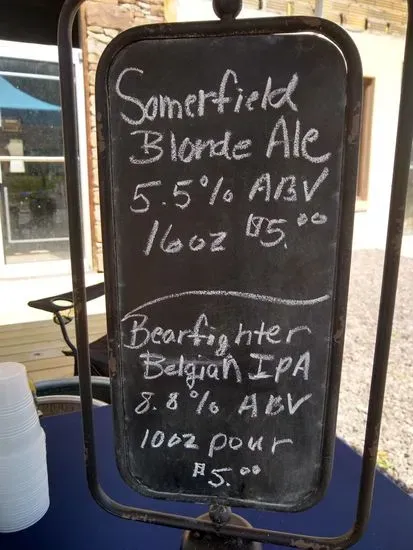 Somerfield
Blonde Ale
5.5% ABV
16oz $5.00
Bearfighter
Belgian IPA
8.8% ABV
10oz pour
$5.00